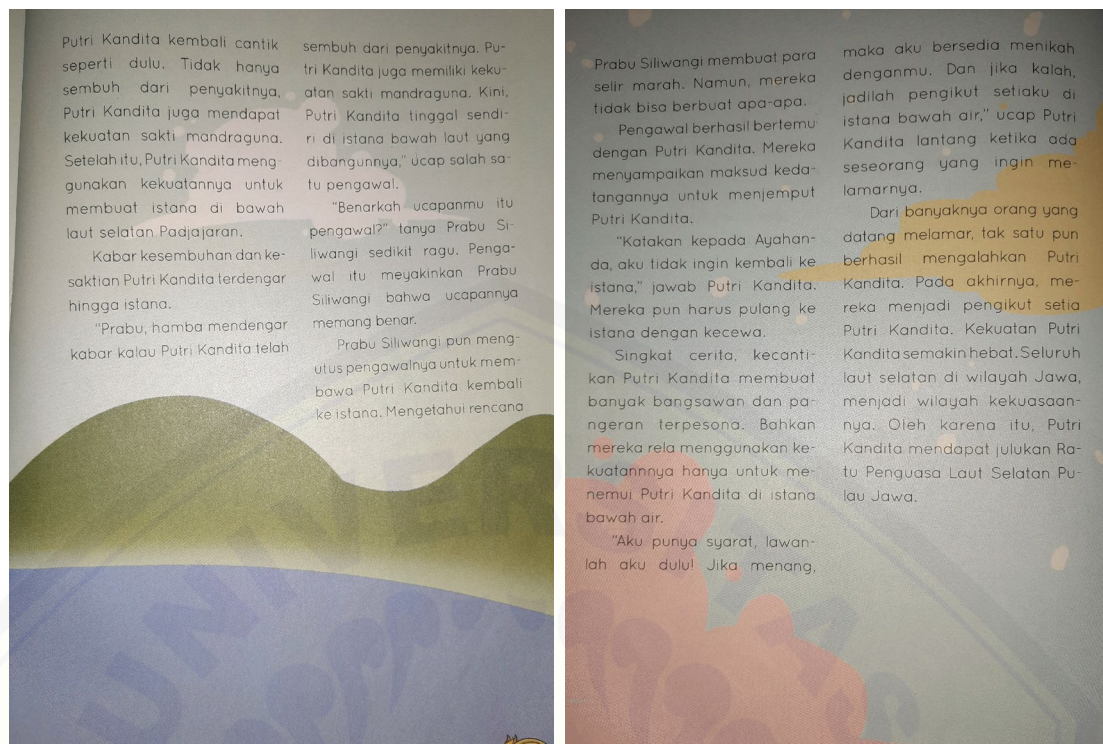 Putri Kandita kembali cantik
seperti dulu. Tidak hanya
sembuh dari penyakitnya,
Putri Kandita juga mendapat
kekuatan sakti mandraguna.
Setelah itu, Putri Kandita meng-
gunakan kekuatannya untuk
membuat istana di bawah
laut selatan Padjajaran.
Kabar kesembuhan dan ke-
saktian Putri Kandita terdengar
hingga istana.
"Prabu, hamba mendengar
kabar kalau Putri Kandita telah
sembuh dari penyakitnya. Pu-
tri Kandita juga memiliki keku-
atan sakti mandraguna. Kini,
Putri Kandita tinggal sendi-
ri di istana bawah laut yang
dibangunnya," ucap salah sa-
tu pengawal.
"Benarkah ucapanmu itu
pengawal?" tanya Prabu Si-
liwangi sedikit ragu. Penga-
wal itu meyakinkan Prabu
Siliwangi bahwa ucapannya
memang benar.
Prabu Siliwangi pun meng-
utus pengawalnya untuk mem-
bawa Putri Kandita kembali
ke istana. Mengetahui rencana
Prabu Siliwangi membuat para
selir marah. Namun, mereka
tidak bisa berbuat apa-apa.
Pengawal berhasil bertemu
dengan Putri Kandita. Mereka
menyampaikan maksud keda-
tangannya untuk menjemput
Putri Kandita.
"Katakan kepada Ayahan-
da, aku tidak ingin kembali ke
istana," jawab Putri Kandita.
Mereka pun harus pulang ke
istana dengan kecewa.
Singkat cerita, kecanti-
kan Putri Kandita membuat
banyak bangsawan dan pa-
ngeran terpesona. Bahkan
mereka rela menggunakan ke-
kuatannnya hanya untuk me-
nemui Putri Kandita di istana
bawah air.
"Aku punya syarat, lawan-
lah aku dulu! Jika menang,
maka aku bersedia menikah
denganmu. Dan jika kalah,
jadilah pengikut setiaku di
istana bawah air," ucap Putri
Kandita lantang ketika ada
seseorang yang ingin me-
lamarnya.
Dari banyaknya orang yang
datang melamar, tak satu pun
berhasil mengalahkan Putri
Kandita. Pada akhirnya, me-
reka menjadi pengikut setia
Putri Kandita. Kekuatan Putri
Kandita semakin hebat. Seluruh
laut selatan di wilayah Jawa,
menjadi wilayah kekuasaan-
nya. Oleh karena itu, Putri
Kandita mendapat julukan Ra-
tu Penguasa Laut Selatan Pu-
lau Jawa.
UNIVERSITAS